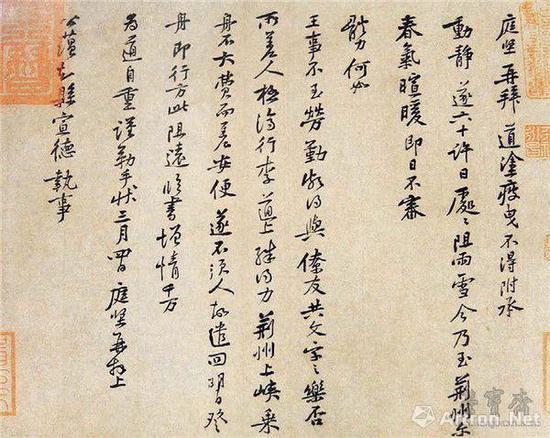 庭堅再拜道塗疲曳不得附承
動静遂六十許日處〻阻雨雪今乃至荆州尔
春氣暄暖即日不審
能力何如
王事不至勞勤頗得與僚友共文字之樂否
所差人極濟行李道上殊得力荆州上峽乘
舟不大費而差安便遂不須人故遣回明日登
舟即行方此阻遠臨書増情千万
為道自重謹勒手狀三月四日庭堅再拜上
公藴知縣宣德執事
Artron.Net